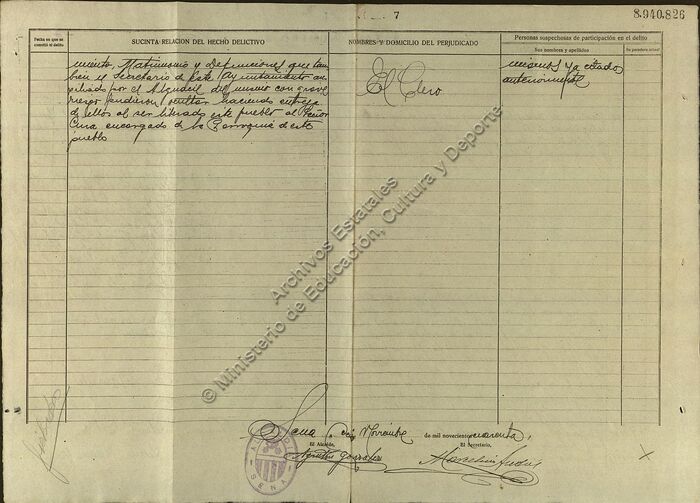 7
8.940.826
Fecha en que se cometió el delito
SUCINTA RELACION DEL HECHO DELICTIVO
NOMBRES Y DOMICILIO DEL PERJUDICADO
Personas sospechosas de participación en el delito
Sus nombres y apellidos
Su paradero actual
miento, Matrimonio y defunciones que tam-
bien el Secretario de este Ayuntamiento au-
xiliado por el Alguacil del mismo con grave
riesgo pudieron ocultar haciendo entrega
de ellos al ser liberado este pueblo al Señor
Cura encargado de la Parroquia de este
pueblo
El Clero
mismos ya citados
anteriormente
© Ministerio de Educación, Cultura y Deporte
Archivos Estatales
Sena a de Noviembre de mil novecientos cuarenta,
El Alcalde,
El Secretario,
ALCALDIA
SENA